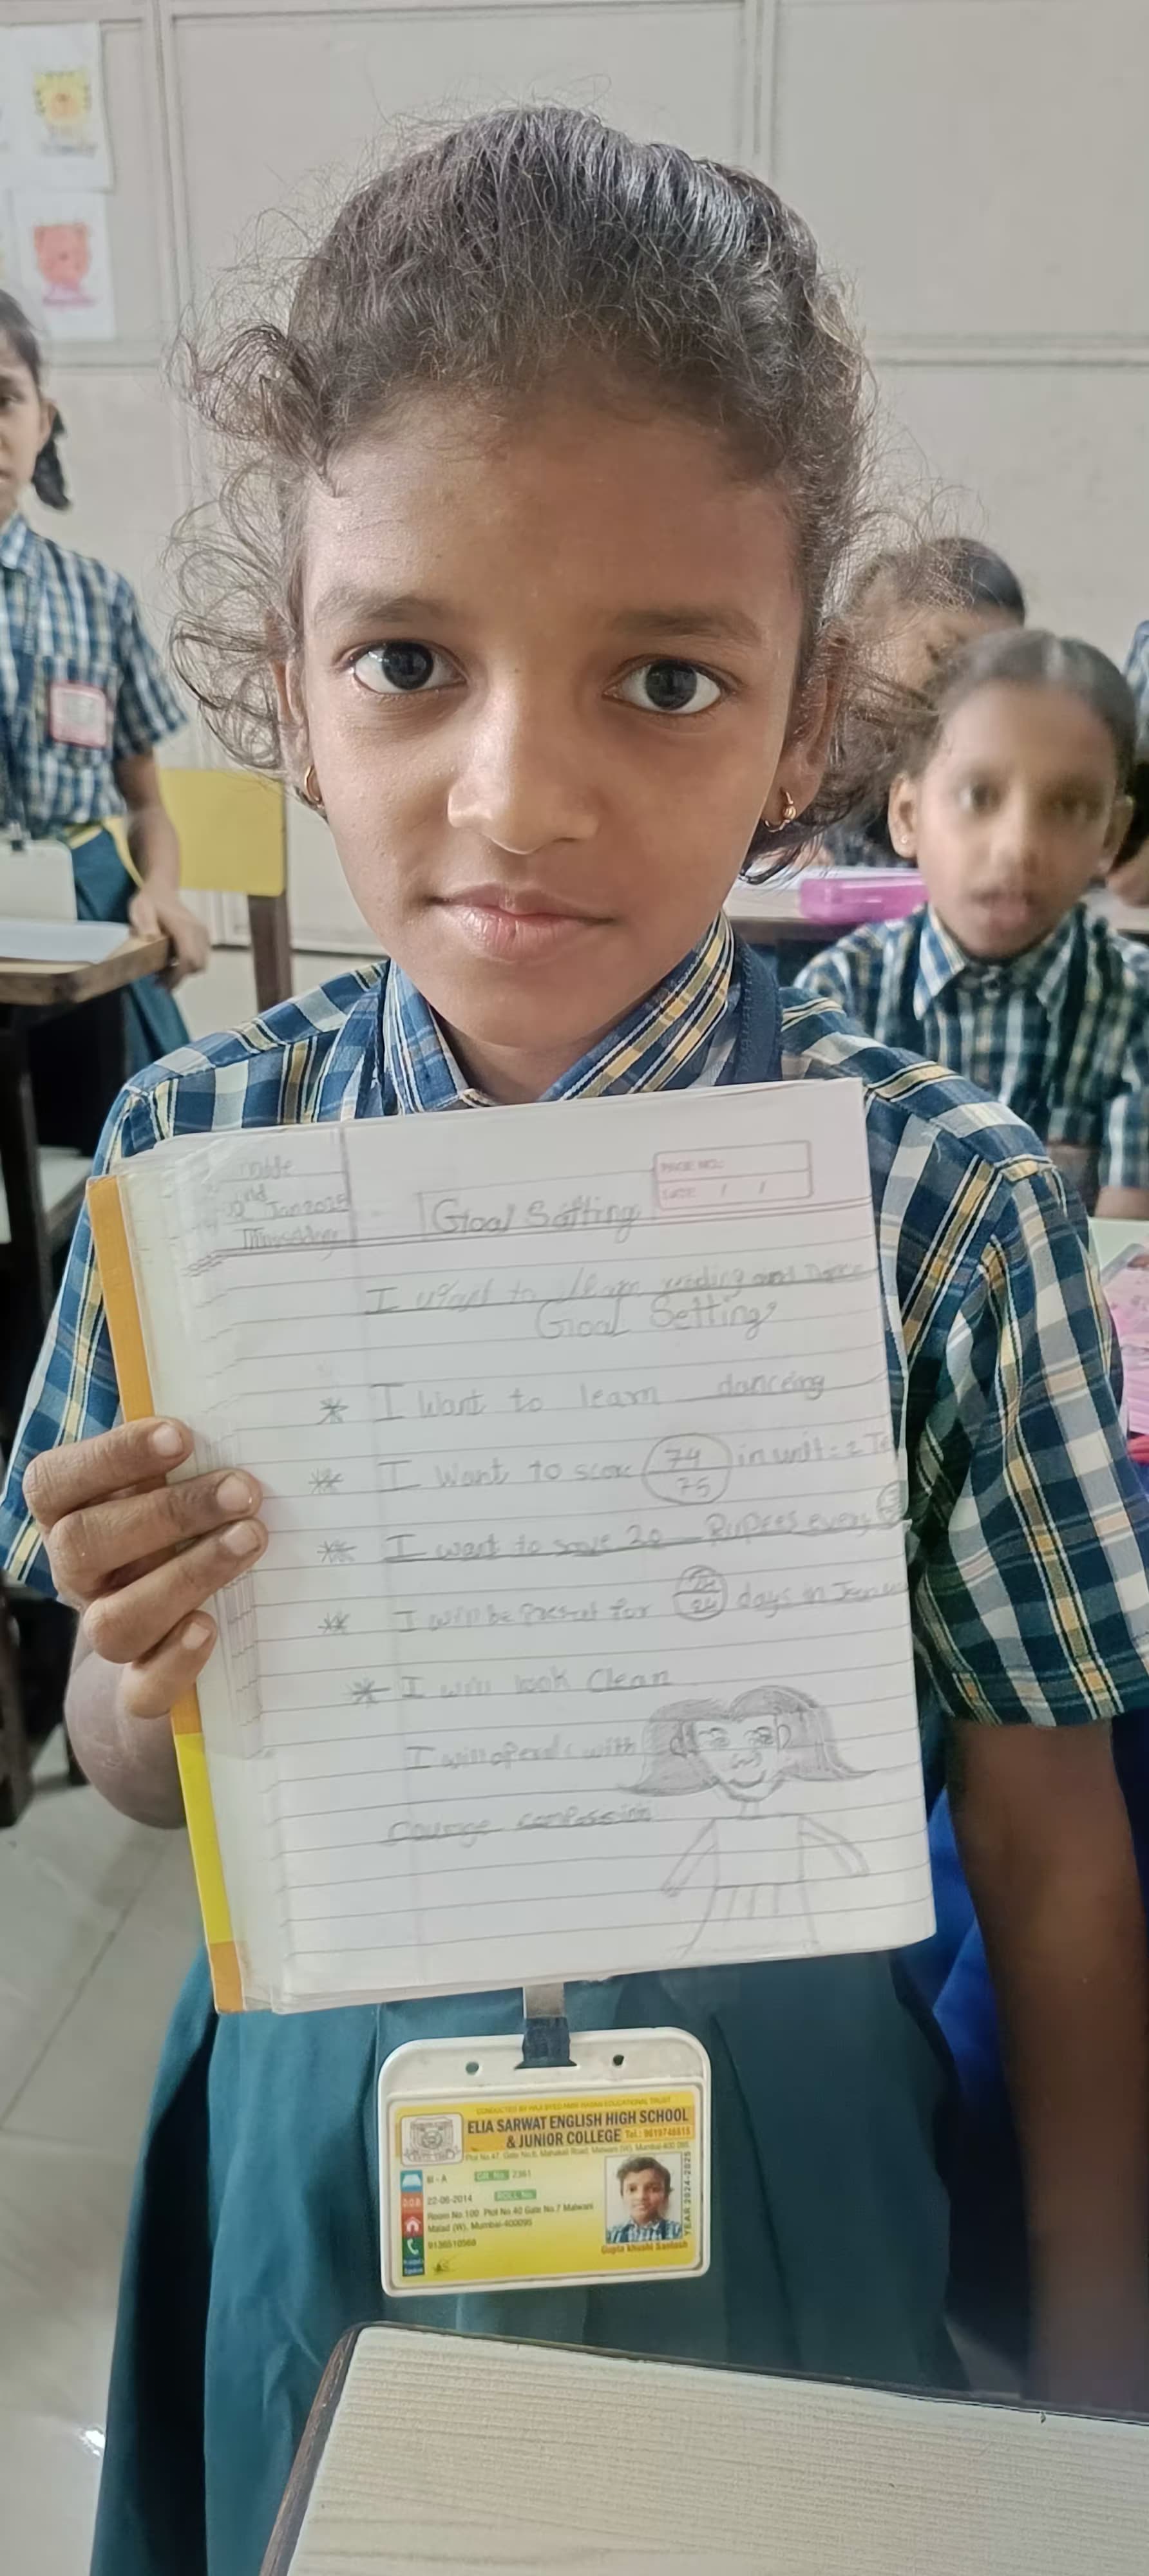 2nd Jan 2025
Thursday
PAGE NO.:
DATE: / /
Goal Setting
I want to learn reading and Dance
Goal Setting
* I Want to learn danceing
** I Want to score 74/75 in unit = 2
** I want to save 20 Rupees every
** I will be Present for days in
* I will look Clean
I will with
courage
CONDUCTED BY HAJI SYED EDUCATIONAL TRUST
ELIA SARWAT ENGLISH HIGH SCHOOL
& JUNIOR COLLEGE Tel.:
Plot No.47, Gate No.8, Mahakali Road, Malwani (W), Mumbai-400 095
III - A GR. No. 2361
DOB 22-06-2014 ROLL No.
Room No 100 Plot No 40 Gate No.7 Malwani
Malad (W), Mumbai-400095
9136510568
Gupta Khushi Santosh
YEAR 2024-2025